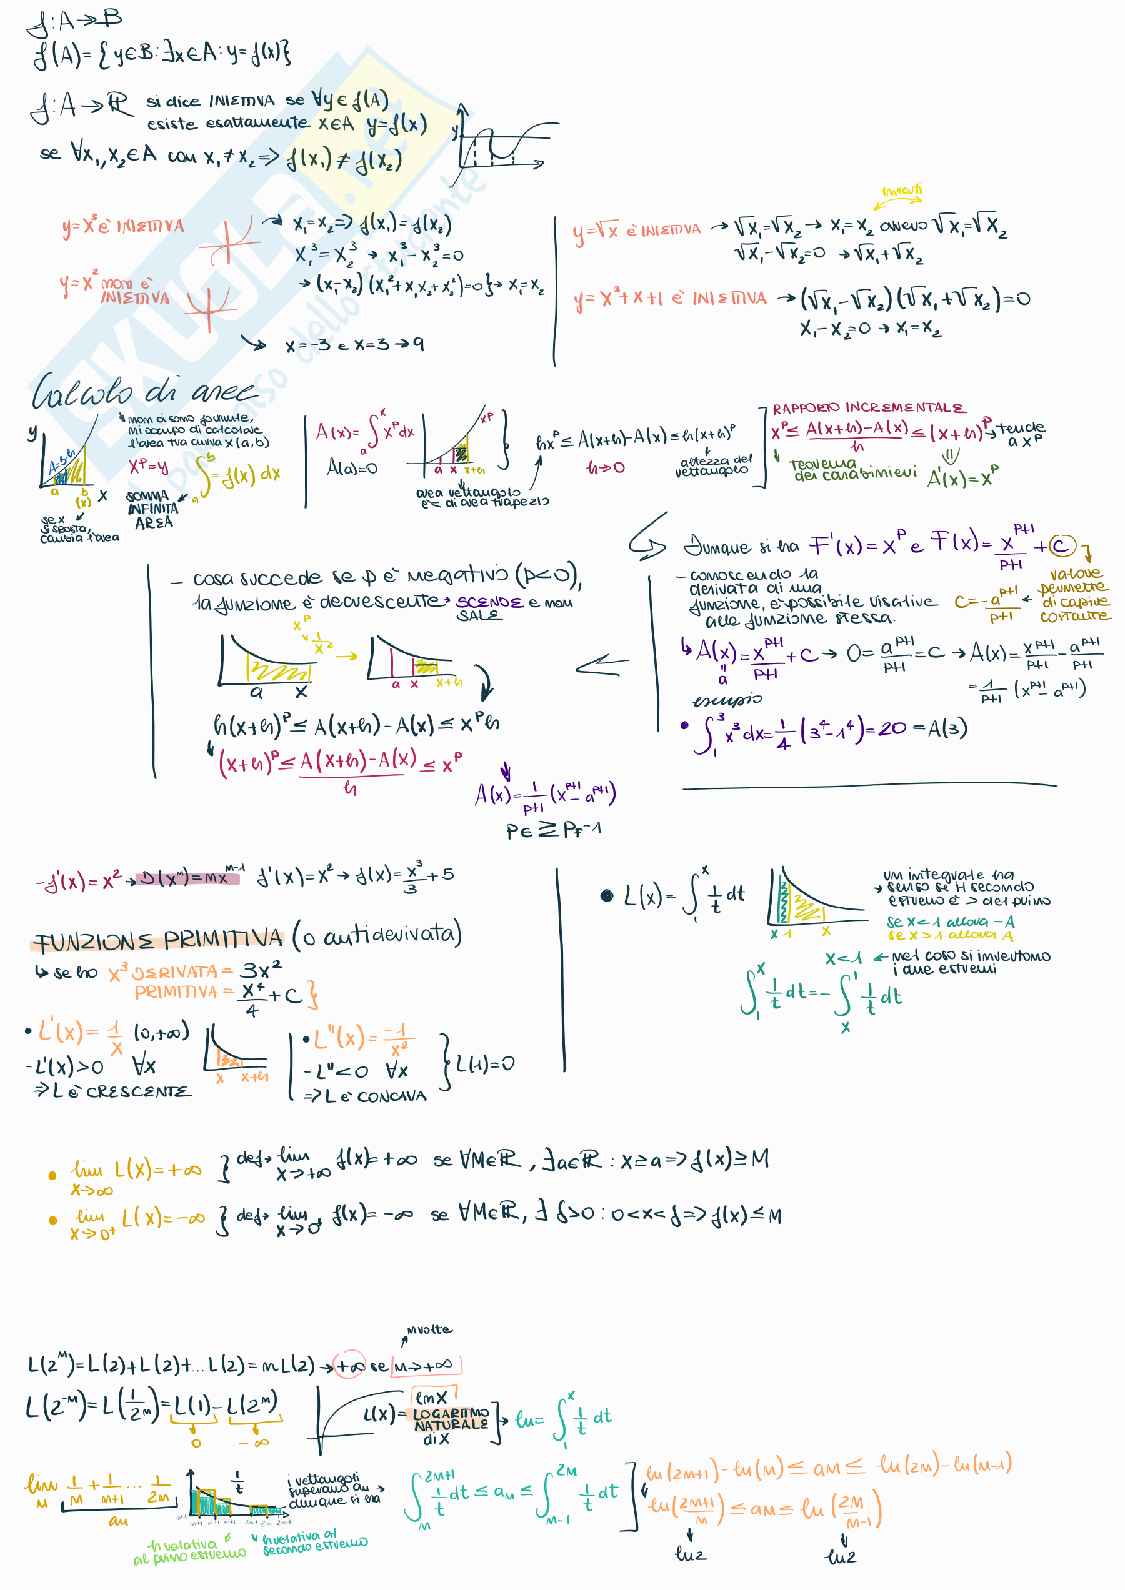 f: A → B
f(A) = { y ∈ B : ∃x ∈ A : y = f(x) }
f: A → ℝ si dice INIETTIVA se ∀y ∈ f(A)
esiste esattamente x ∈ A y = f(x)
se ∀x₁, x₂ ∈ A con x₁ ≠ x₂ => f(x₁) ≠ f(x₂)
y
y = x³ è INIETTIVA
→ x₁ = x₂ => f(x₁) = f(x₂)
x₁³ = x₂³ → x₁³ - x₂³ = 0
→ (x₁-x₂) (x₁² + x₁x₂ + x₂²) = 0 } → x₁ = x₂
y = x² non è
INIETTIVA
→ x = -3 e x = 3 → 9
y = √x è INIETTIVA → √x₁ = √x₂ → x₁ = x₂ ovvero √x₁ = √x₂
√x₁ - √x₂ = 0 → √x₁ + √x₂
y = x³ + x + 1 è INIETTIVA → (√x₁ - √x₂)(√x₁ + √x₂) = 0
x₁ - x₂ = 0 → x₁ = x₂
SKUOLA.net
Calcolo di aree
non ci sono formule,
mi occupo di calcolare
l'area tra curva x (a, b)
y
x^p = y
∫_a^b = f(x) dx
a b (x) x
SOMMA
INFINITA
AREA
se x
si sposta,
cambia l'area
A(x) = ∫_a^x x^p dx
A(a) = 0
x^p
a x x+h
area rettangolo
è < di area trapezio
hx^p ≤ A(x+h) - A(x) ≤ h(x+h)^p
h → 0
altezza del
rettangolo
RAPPORTO INCREMENTALE
x^p ≤ (A(x+h) - A(x))/h ≤ (x+h)^p → tende
a x^p
teorema
dei carabinieri A'(x) = x^p
Dunque si ha F'(x) = x^p e F(x) = x^(p+1)/(p+1) + C
- conoscendo la
derivata di una
funzione, è possibile risalire
alla funzione stessa.
C = -a^(p+1)/(p+1) ← valore
permette
di capire
costante
↳ A(x) = x^(p+1)/(p+1) + C → 0 = a^(p+1)/(p+1) = C → A(x) = x^(p+1)/(p+1) - a^(p+1)/(p+1)
a
= 1/(p+1) (x^(p+1) - a^(p+1))
esempio
• ∫_1^3 x³ dx = 1/4 (3⁴ - 1⁴) = 20 = A(3)
- cosa succede se p è negativo (p<0),
la funzione è decrescente → SCENDE e non
SALE
x^p
1/x²
a x
a x x+h
h(x+h)^p ≤ A(x+h) - A(x) ≤ x^p h
(x+h)^p ≤ (A(x+h) - A(x))/h ≤ x^p
A(x) = 1/(p+1) (x^(p+1) - a^(p+1))
p ∈ ℤ p ≠ -1
- f'(x) = x² → D(x^m) = mx^(m-1) f'(x) = x² → f(x) = x³/3 + 5
FUNZIONE PRIMITIVA (o antiderivata)
↳ se ho x³ DERIVATA = 3x²
PRIMITIVA = x⁴/4 + C }
• L'(x) = 1/x (0, +∞)
- L'(x) > 0 ∀x
=> L è CRESCENTE
x x+h
• L''(x) = -1/x²
- L'' < 0 ∀x
=> L è CONCAVA
} L(1) = 0
• L(x) = ∫_1^x 1/t dt
x 1 x
un integrale ha
senso se il secondo
estremo è > del primo
se x<1 allora -A
se x>1 allora A
x<1 ← nel caso si invertono
i due estremi
∫_1^x 1/t dt = - ∫_x^1 1/t dt
• lim x→∞ L(x) = +∞ } def → lim x→+∞ f(x) = +∞ se ∀M∈ℝ, ∃a∈ℝ : x ≥ a => f(x) ≥ M
• lim x→0⁺ L(x) = -∞ } def → lim x→0⁺ f(x) = -∞ se ∀M∈ℝ, ∃ δ>0 : 0<x<δ => f(x) ≤ M
n volte
L(2^n) = L(2) + L(2) + ... L(2) = n L(2) → +∞ se n → +∞
L(2^-n) = L(1/2^n) = L(1) - L(2^n)
0 -∞
L(x) = lnx
LOGARITMO
NATURALE
di x
→ ln = ∫_1^x 1/t dt
lim n 1/n + 1/(n+1) ... 1/2n
an
1/t
i rettangoli
superano an →
dunque si ha
h relativa
al primo estremo
h relativa al
secondo estremo
∫_n^(2n+1) 1/t dt ≤ an ≤ ∫_(n-1)^(2n) 1/t dt
ln(2n+1) - ln(n) ≤ an ≤ ln(2n) - ln(n-1)
ln((2n+1)/n) ≤ an ≤ ln(2n/(n-1))
ln2 ln2